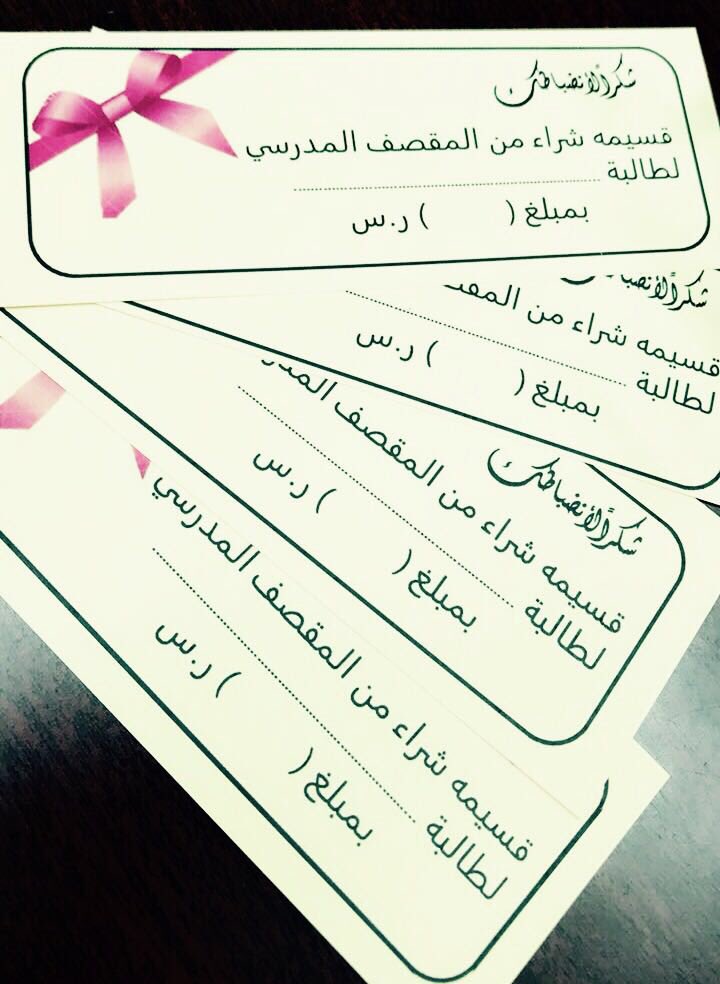 شكراً لأنضباطك
قسيمه شراء من المقصف المدرسي
لطالبة ........................
بمبلغ (        ) ر.س
شكراً لأنضباطك
قسيمه شراء من
لطالبة ........................
بمبلغ (        ) ر.س
شكراً لأنضباطك
قسيمه شراء من المقصف
لطالبة ........................
بمبلغ (        ) ر.س
قسيمه شراء من المقصف المدرسي
لطالبة ........................
بمبلغ (        ) ر.س